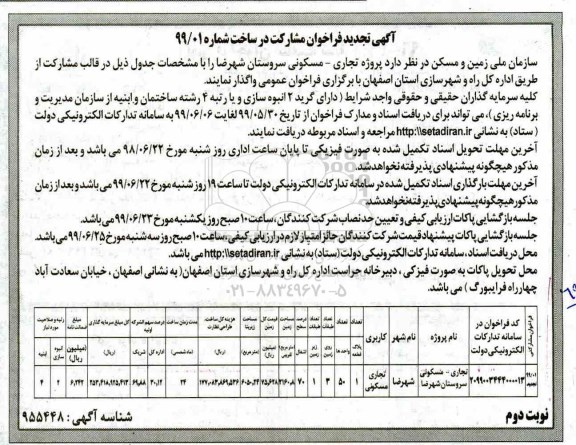 آگهی تجدید فراخوان مشارکت در ساخت شماره ۹۹/۰۱
سازمان ملی زمین و مسکن در نظر دارد پروژه تجاری – مسکونی سروستان شهرضا را با مشخصات جدول ذیل در قالب مشارکت از
طریق اداره کل راه و شهرسازی استان اصفهان با برگزاری فراخوان عمومی واگذار نمایند.
کلیه سرمایه گذاران حقیقی و حقوقی واجد شرایط ( دارای گرید ۲ انبوه سازی و یا رتبه ۴ رشته ساختمان و ابنیه از سازمان مدیریت و
برنامه ریزی )، می تواند برای دریافت اسناد و مدارک فراخوان از تاریخ ۹۹/۰۵/۳۰ لغایت ۹۹/۰۶/۰۶ به سامانه تدارکات الکترونیکی دولت
( ستاد) به نشانی http:\\setadiran.ir مراجعه و اسناد مربوطه دریافت نمایند.
آخرین مهلت تحویل اسناد تکمیل شده به صورت فیزیکی تا پایان ساعت اداری روز شنبه مورخ ۹۸/۰۶/۲۲ می باشد و بعد از زمان
مذکور هیچگونه پیشنهادی پذیرفته نخواهد شد.
آخرین مهلت بارگذاری اسناد تکمیل شده در سامانه تدارکات الکترونیکی دولت تا ساعت ۱۹ روز شنبه مورخ ۹۹/۰۶/۲۲ می باشد و بعد از زمان
مذکور هیچگونه پیشنهادی پذیرفته نخواهد شد.
جلسه بازگشایی پاکات ارزیابی کیفی و تعیین حد نصاب شرکت کنندگان، ساعت ۱۰ صبح روز یکشنبه مورخ ۹۹/۰۶/۲۳ می باشد.
جلسه بازگشایی پاکات پیشنهاد قیمت شرکت کنندگان حائز امتیاز لازم در ارزیابی کیفی، ساعت ۱۰ صبح روز سه شنبه مورخ ۹۹/۰۶/۲۵ می باشد.
محل دریافت اسناد، سامانه تدارکات الکترونیکی دولت (ستاد) به نشانی http:\\setadiran.ir می باشد.
محل تحویل پاکات به صورت فیزکی، دبیرخانه حراست اداره کل راه و شهرسازی استان اصفهان( به نشانی اصفهان ، خیابان سعادت آباد
چهارراه فرایبورگ ) می باشد.
۰۲۱-۸۸۳۴۹۶۷۰-۵
کد فراخوان در سامانه تدارکات الکترونیکی دولت | نام پروژه | نام شهر | کاربری | تعداد واحدها | تعداد طبقات
۲۰۹۹۰۰۳۴۴۲۰۰۰۰۱۳ | تجاری – مسکونی سروستان شهرضا | شهرضا | تجاری مسکونی | ۱ | ۵۰ | ۳ | ۱ | ۷۰ | ۲۴ | ۳۰,۱۲ | ۶۹,۸۸ | ۲ | ۴
نوبت دوم
شناسه آگهی : ۹۵۵۴۴۸